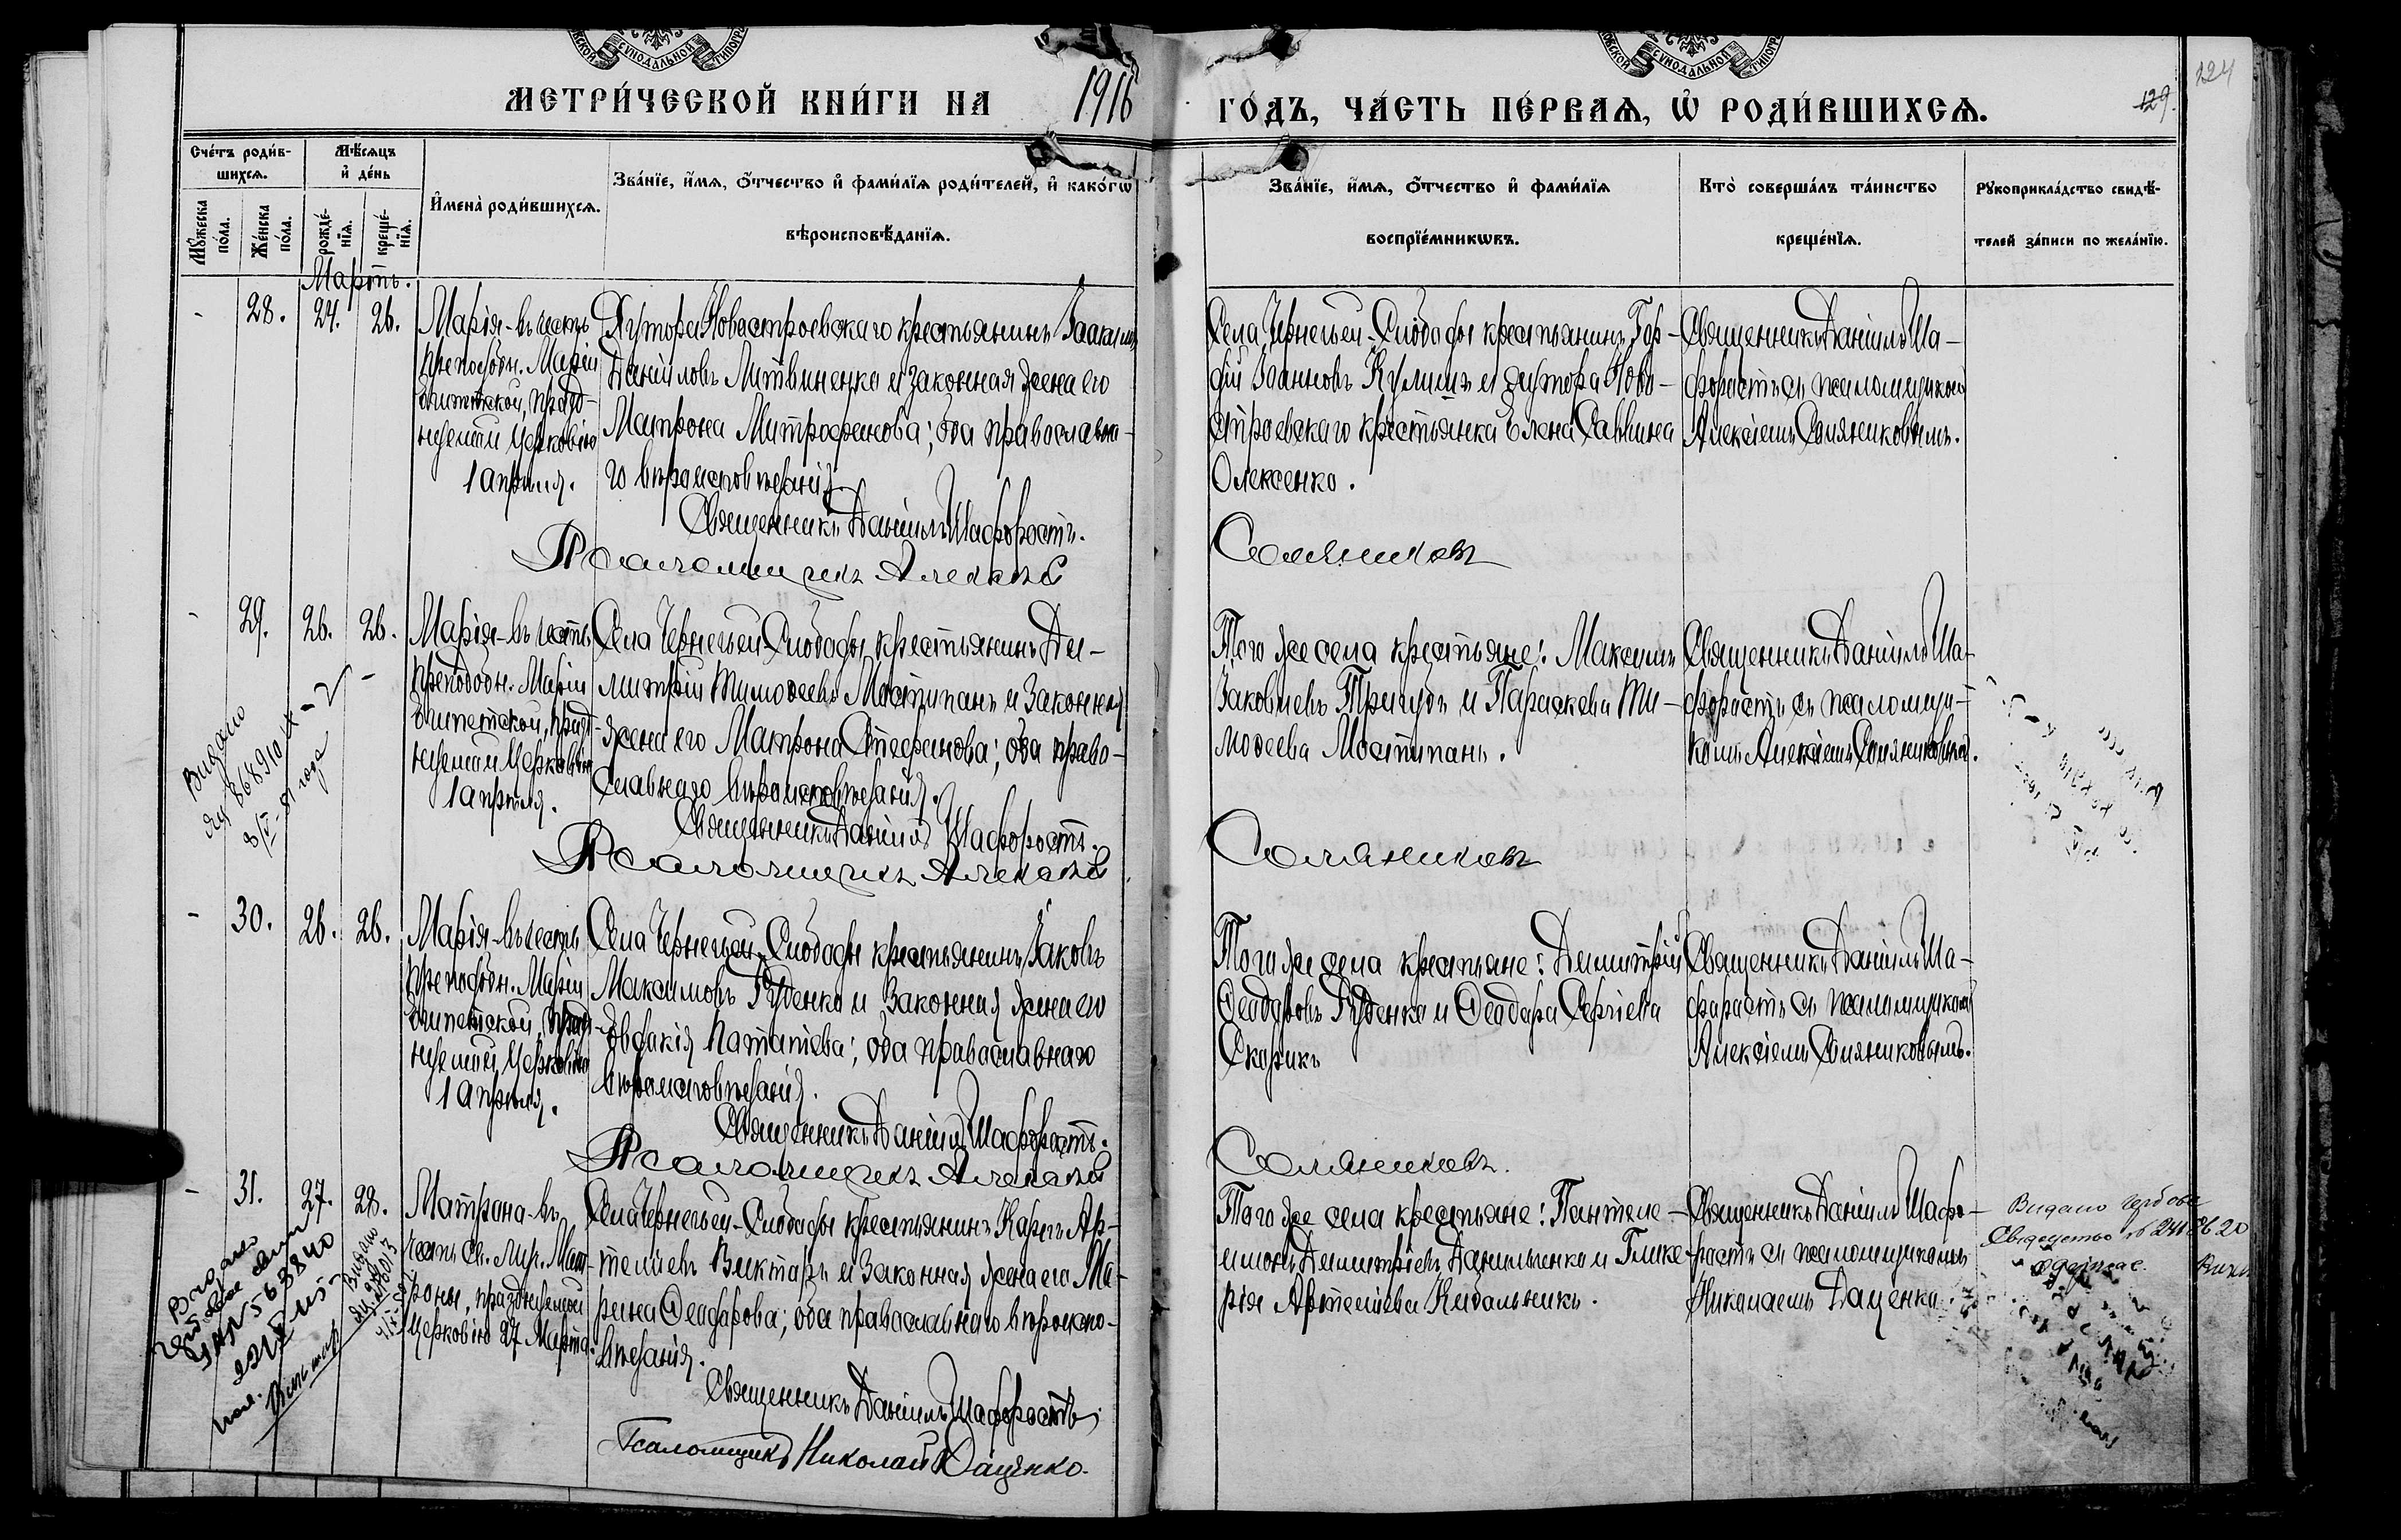 СѴНОДАЛЬНОЙ ТИПОГР
СѴНОДАЛЬНОЙ ТИПОГР
МЕТРИ́ЧЕСКОЙ КНИ́ГИ НА 1916 ГО́ДЪ, ЧА́СТЬ ПЕ́РВАѦ, Ѡ҆ РОДИ́ВШИХСѦ.
129.
124
Сче́тъ роди́в-
шихсѧ.
Мѣ́сѧцъ
и҆ де́нь
Мꙋ́жеска
по́ла.
Же́нска
по́ла.
рожде́-
нїѧ.
креще́-
нїѧ.
И҆мена̀ роди́вшихсѧ.
Зва́нїе, и҆́мѧ, ѻ҆́тчество и҆ фами́лїѧ роди́телей, и҆ како́гѡ
вѣроисповѣ́данїѧ.
Зва́нїе, и҆́мѧ, ѻ҆́тчество и҆ фами́лїѧ
воспрїе́мникѡвъ.
Кто̀ соверша́лъ та́инство
креще́нїѧ.
Рꙋкоприкла́дство свидѣ́-
телей за́писи по жела́нїю.
Мартъ.
- 28. 24. 26.
Марія - въ честь
преподобн. Маріи
Египетской, празд-
нуемой Церковію
1 Апрѣля.
Хутора Новостроевскаго крестьянинъ Іоакимъ
Даніиловъ Литвиненко и законная жена его
Матрона Митрофанова; оба православна-
го вѣроисповѣданія.
Священникъ Даніилъ Шафоростъ.
Псаломщикъ Алексѣй
Села Чернечьей-Слободы крестьянинъ Гор-
дій Іоанновъ Кулишъ и хутора Ново-
строевскаго крестьянка Елена Саввина
Олексенко.
Соляниковъ
Священникъ Даніилъ Ша-
форостъ съ псаломщикомъ
Алексѣемъ Соляниковымъ.
- 29. 26. 26.
Марія - въ честь
преподобн. Маріи
Египетской, празд-
нуемой Церковію
1 Апрѣля.
Села Чернечьей-Слободы крестьянинъ Ди-
митрій Тимоѳеевъ Мостипанъ и законная
жена его Матрона Стефанова; оба право-
славнаго вѣроисповѣданія.
Священникъ Даніилъ Шафоростъ.
Псаломщикъ Алексѣй
Того же села крестьяне: Максимъ
Іаковлевъ Тригубъ и Параскева Ти-
моѳеева Мостипанъ.
Соляниковъ
Священникъ Даніилъ Ша-
форостъ съ псаломщи-
комъ Алексѣемъ Соляниковымъ.
Видано
868910
года
- 30. 26. 26.
Марія - въ честь
преподобн. Маріи
Египетской, празд-
нуемой Церковію
1 Апрѣля.
Села Чернечьей-Слободы крестьянинъ Іаковъ
Максимовъ Руденко и законная жена его
Евдокія Ипатіева; оба православнаго
вѣроисповѣданія.
Священникъ Даніилъ Шафоростъ.
Псаломщикъ Алексѣй
Того же села крестьяне: Димитрій
Ѳеодоровъ Руденко и Ѳеодора Сергіева
Скорикъ
Соляниковъ.
Священникъ Даніилъ Ша-
форостъ съ псаломщикомъ
Алексѣемъ Соляниковымъ.
- 31. 27. 28.
Матрона - въ
честь св. муч. Мат-
роны, празднуемой
Церковію 27 Марта.
Села Чернечьей-Слободы крестьянинъ Карпъ Ар-
теміевъ Виктаръ и законная жена его Ма-
рина Ѳеодорова; оба православнаго вѣроиспо-
вѣданія.
Священникъ Даніилъ Шафоростъ.
Псаломщикъ Николай Даценко.
Того же села крестьяне: Пантеле-
имонъ Димитріевъ Данильченко и Глике-
рія Артеміева Кидальникъ.
Священникъ Даніилъ Шафо-
ростъ съ псаломщикомъ
Николаемъ Даценко.
Видано
563840
Видано